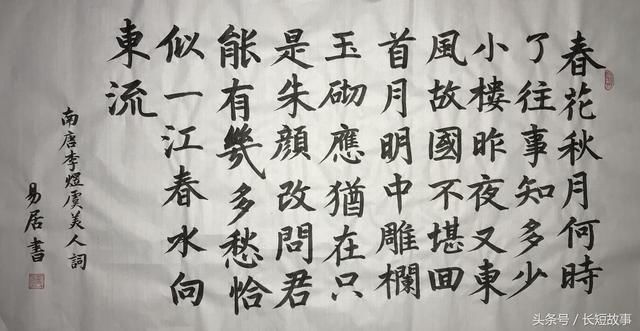 春花秋月何時
了往事知多少
小樓昨夜又東
風故國不堪回
首月明中雕欄
玉砌應猶在只
是朱顏改問君
能有幾多愁恰
似一江春水向
東流
南唐李煜虞美人詞
易居書
头条号 / 长短故事